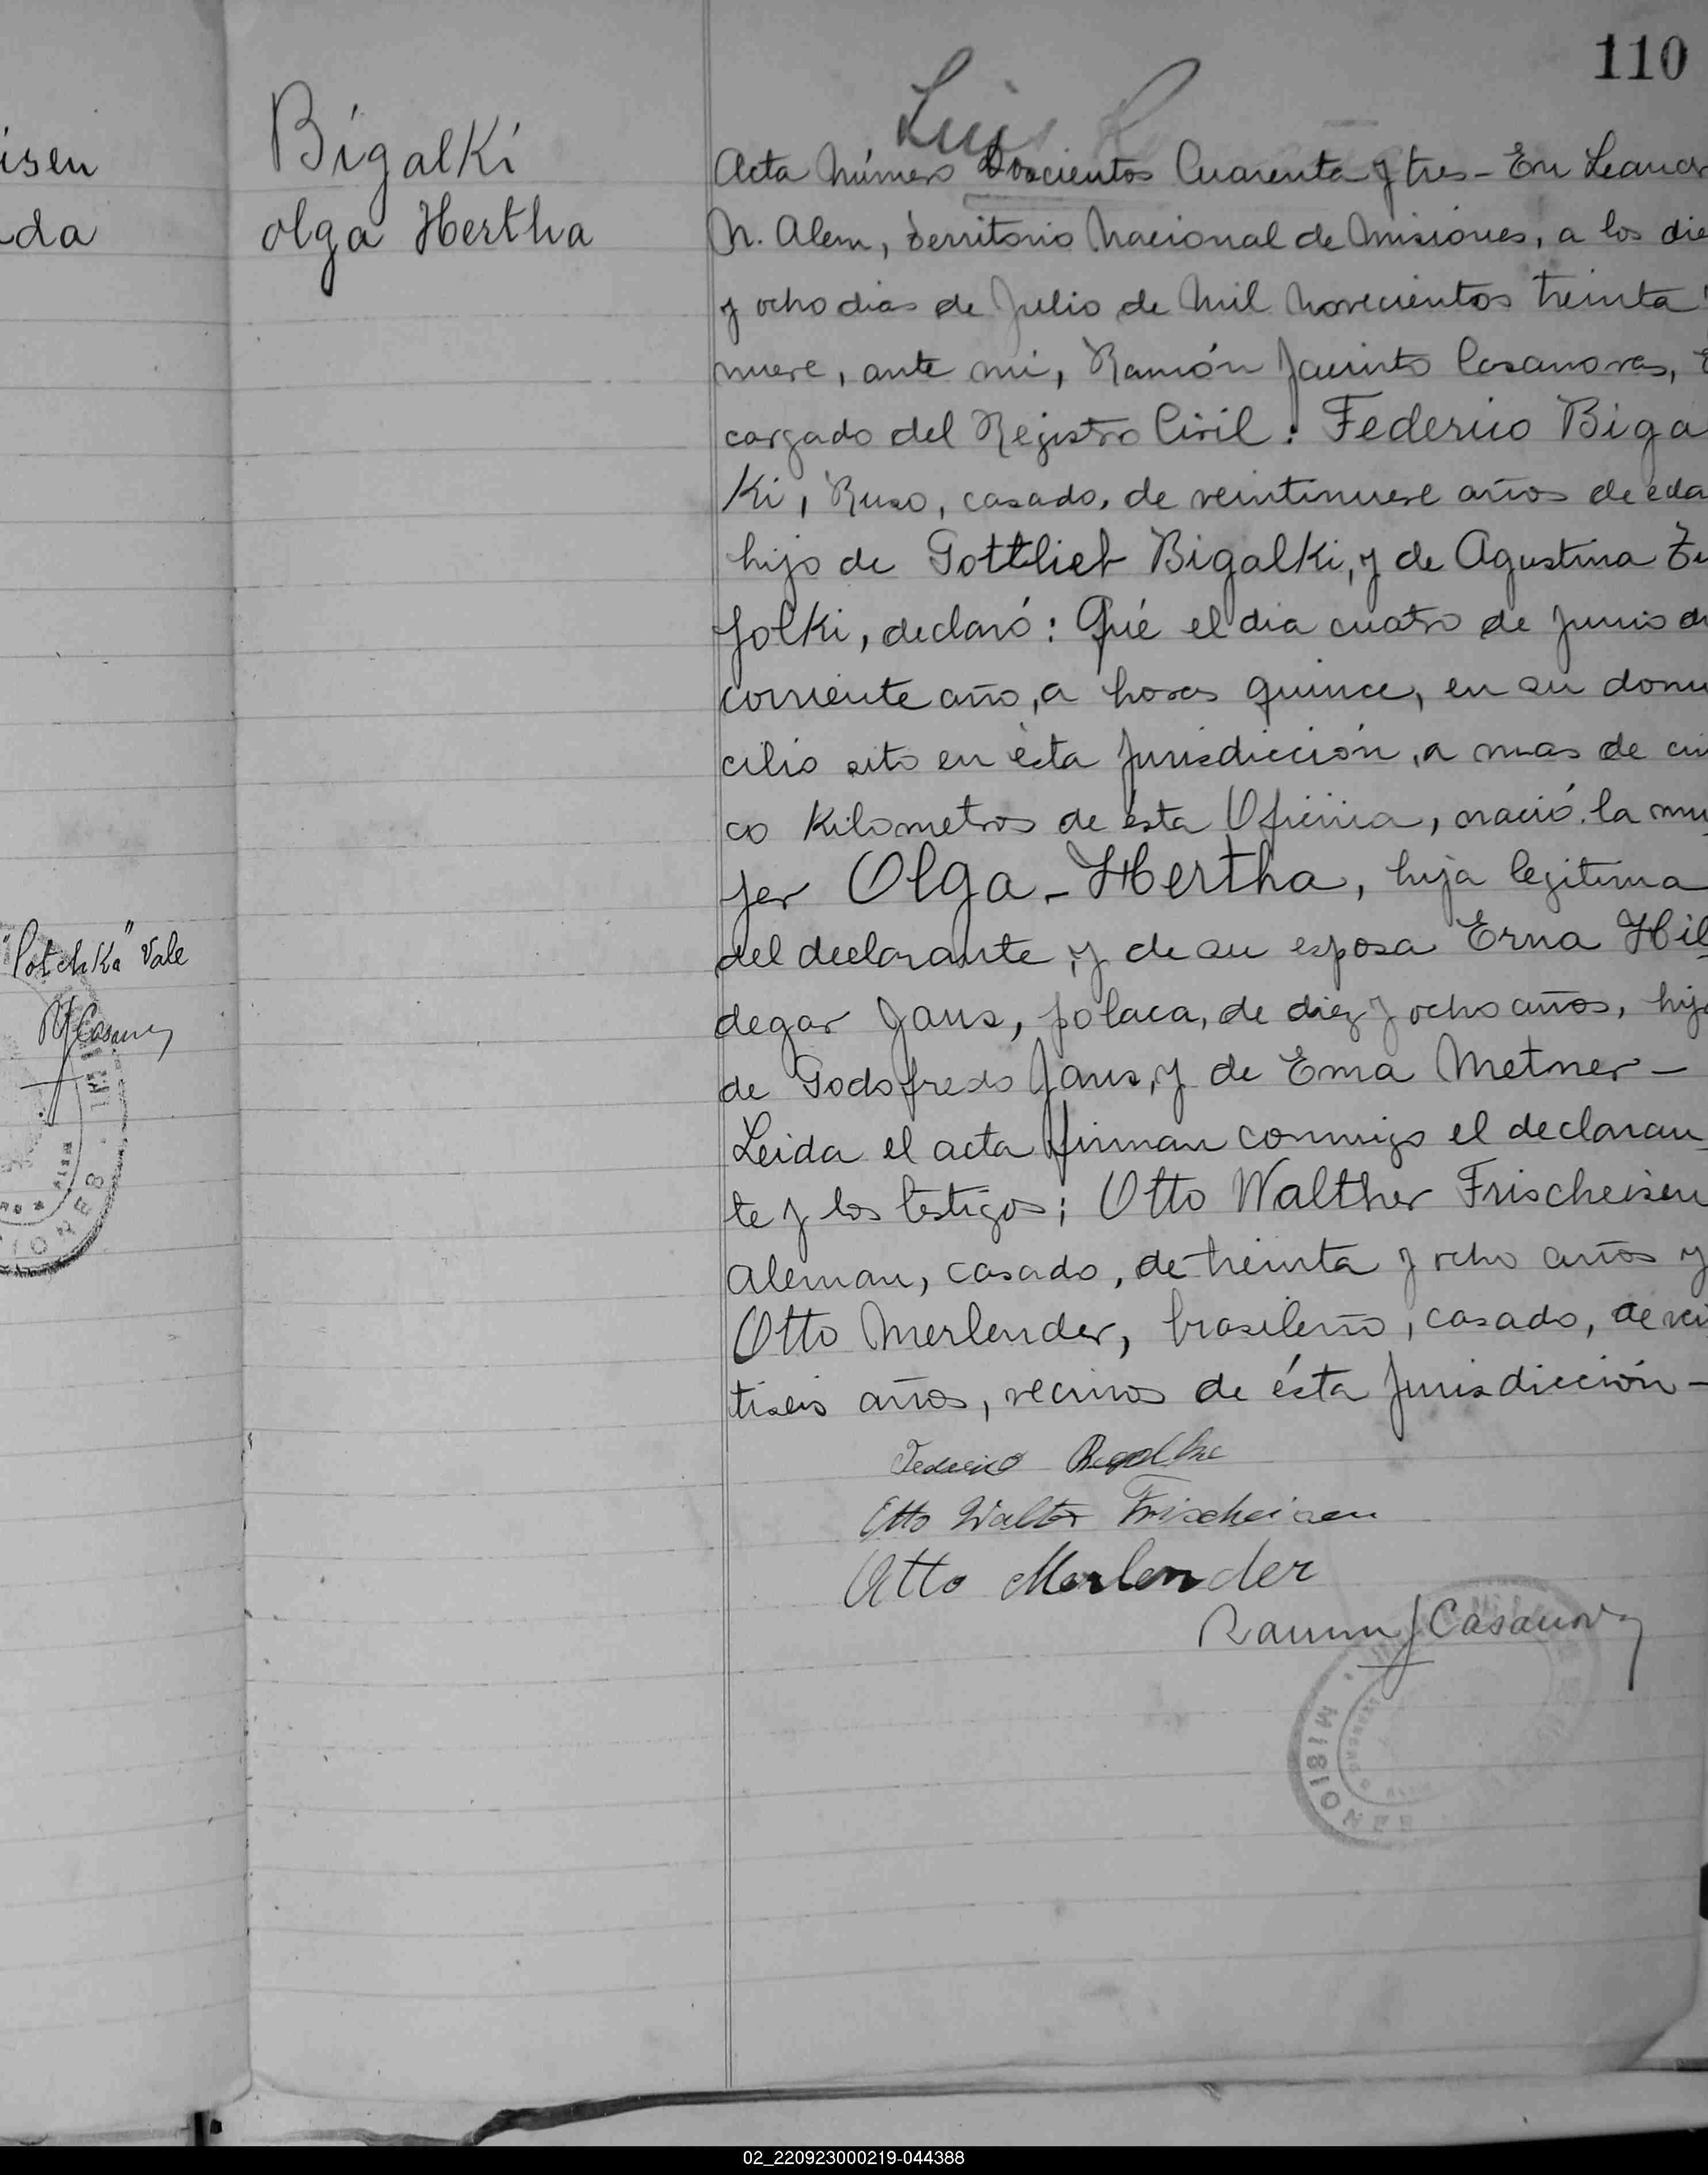 110
isen
da
Bigalki
olga Hertha
Luis
Acta Número Doscientos Cuarenta y tres - En Leandr
N. Alem, territorio Nacional de Misiones, a los die
y ocho dias de Julio de Mil Novecientos treinta
nueve, ante mi, Ramón Jacinto Casanovas, E
cargado del Registro Civil: Federico Biga
Ki, Ruso, casado, de veintinueve años de eda
hijo de Gottlieb Bigalki, y de Agustina
Jolki, declaró: Qué el dia cuatro de Junio de
corriente año, a horas quince, en su domi
cilio sito en ésta Jurisdicción, a mas de cin
co Kilometros de ésta Oficina, nació la mu
jer Olga - Hertha, hija legitima
del declarante, y de su esposa Erna Hil-
degar Jans, polaca, de diez y ocho años, hija
de Godofredo Jans, y de Ema Metner -
Leida el acta firman conmigo el declaran-
te y los testigos; Otto Walther Frischeisen
Aleman, casado, de treinta y ocho años y
Otto Merlender, brasileño, casado, de vei
tiseis años, vecinos de ésta Jurisdicción -
Federico Bigalke
Otto Walter Frischeisen
Otto Merlender
Ramon J Casanovas
MISIONES
Vale
RJCasanovas
MISIONES
02_220923000219-044388